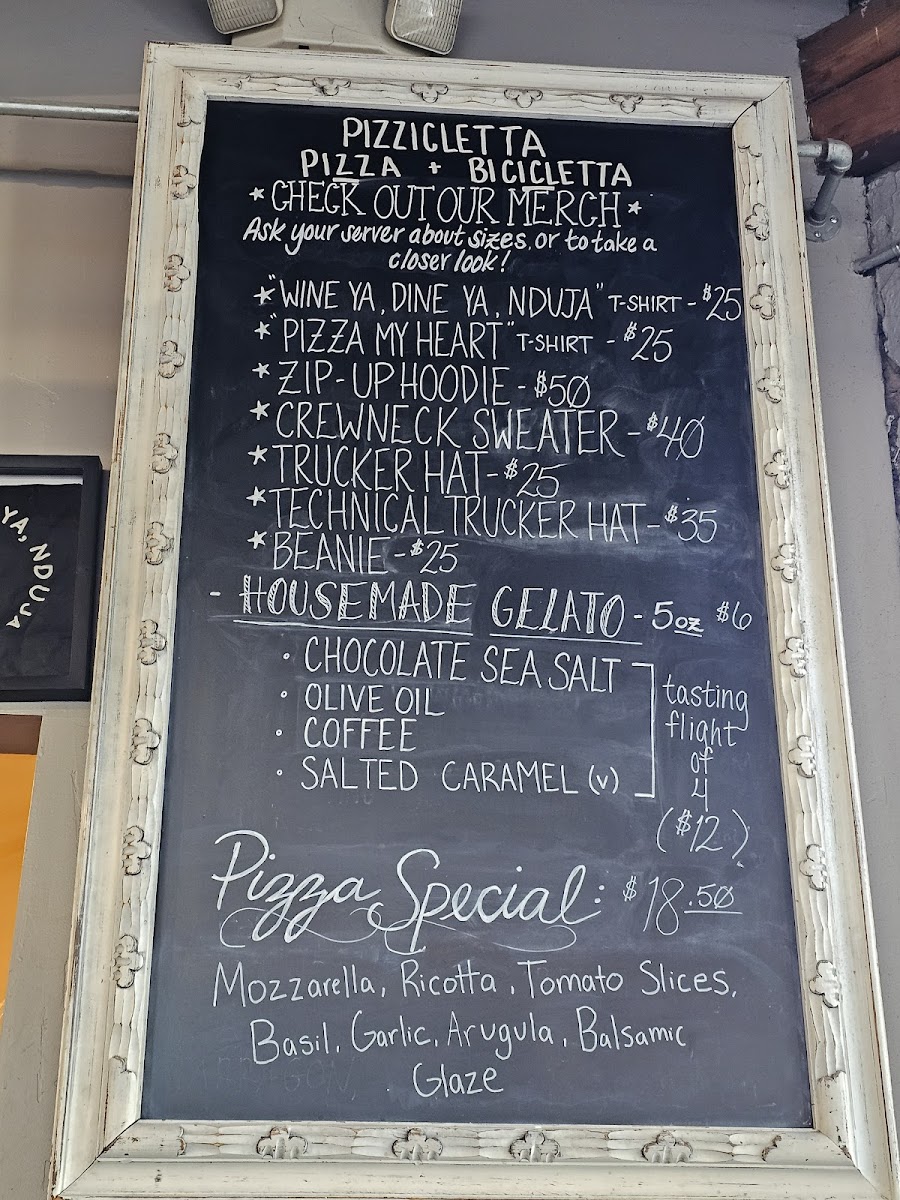 PIZZICLETTA
PIZZA + BICICLETTA
* CHECK OUT OUR MERCH *
Ask your server about sizes, or to take a
closer look!
* "WINE YA, DINE YA, NDUJA" T-SHIRT - $25
* "PIZZA MY HEART" T-SHIRT - $25
* ZIP-UP HOODIE - $50
* CREWNECK SWEATER - $40
* TRUCKER HAT - $25
* TECHNICAL TRUCKER HAT - $35
* BEANIE - $25
- HOUSEMADE GELATO - 5oz $6
• CHOCOLATE SEA SALT
• OLIVE OIL
• COFFEE
• SALTED CARAMEL (v)
tasting
flight
of
4
($12)
Pizza Special: $18.50
Mozzarella, Ricotta, Tomato Slices,
Basil, Garlic, Arugula, Balsamic
Glaze
YA, NDUJA